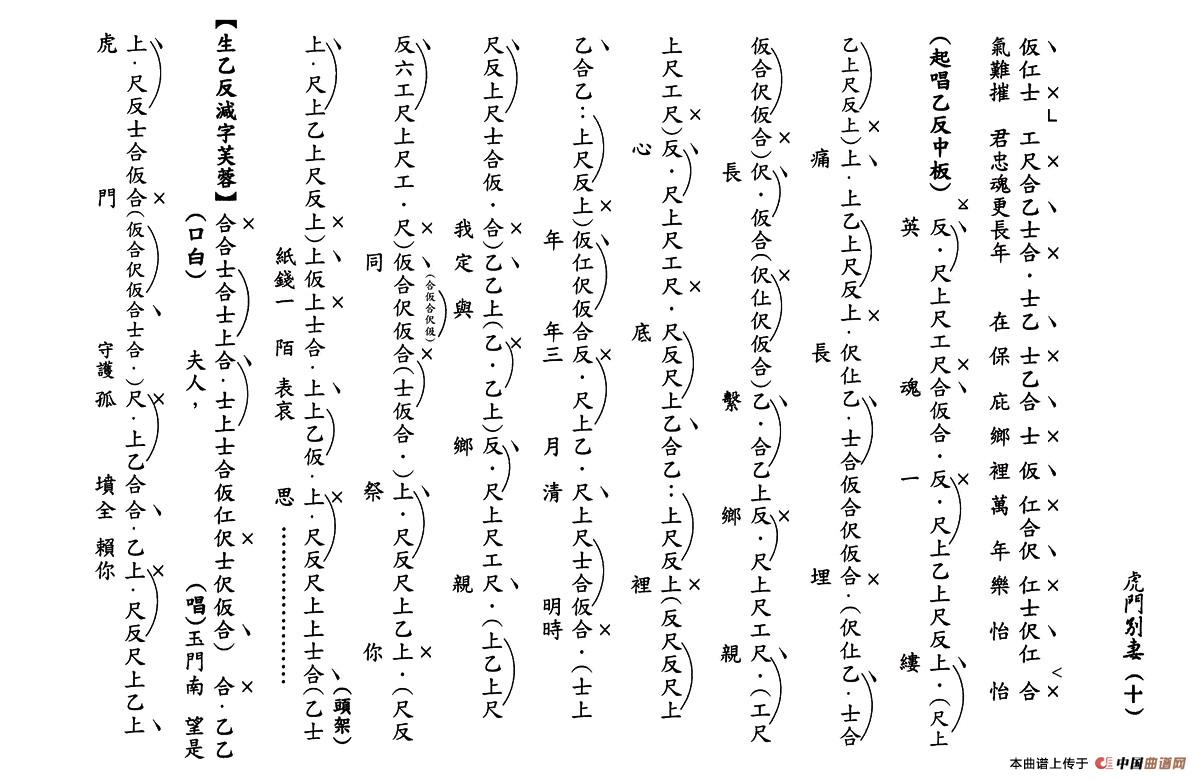 虎門別妻（十）
仮仜士 工尺合乙士合．士乙 士乙合 士仮仜合伬 仜士伬仜 合
氣難摧 君忠魂更長年 在保庇鄉裡萬年樂怡怡
（起唱乙反中板） 反．尺上尺工尺合仮合．反．尺上乙上尺反上．（尺上
英 魂 一 縷
乙上尺反上）上．上乙上尺反上．伬仩乙．士合仮合伬仮合．（伬仩乙．士合
痛 長 埋
仮合伬仮合）伬．仮合（伬仩伬仮合）乙．合乙上反．尺上尺工尺．（工尺
長 繫 鄉 親
上尺工尺）反．尺上尺工尺．尺反尺上乙合乙：上尺反上（反尺反尺上
心 底 裡
乙合乙：上尺反上）仮仜伬仮合反．尺上乙．尺上尺士合仮合．（士上
年 年三 月 清 明時
尺反上尺士合仮．合）乙乙上（乙．乙上）反．尺上尺工尺．（上乙上尺
我定與 鄉 親
反六工尺上尺工．尺）仮合伬仮合（士仮合．）上．尺反尺上乙上．（尺反
（合仮合伬伋）
同 祭 你
上．尺上乙上尺反上）上仮上士合．上上乙仮．上．尺反尺上上士合（乙士
紙錢一陌表哀 思………………
（頭架）
【生乙反減字芙蓉】 合合士合士上合．士上士合仮仜伬士伬仮合） 合．乙乙
（口白） 夫人， （唱）玉門南 望是
上．尺反士合仮合（仮合伬仮合士合．）尺．上乙合合．乙上．尺反尺上乙上
虎 門 守護孤 墳全 賴你
本曲谱上传于 中国曲谱网